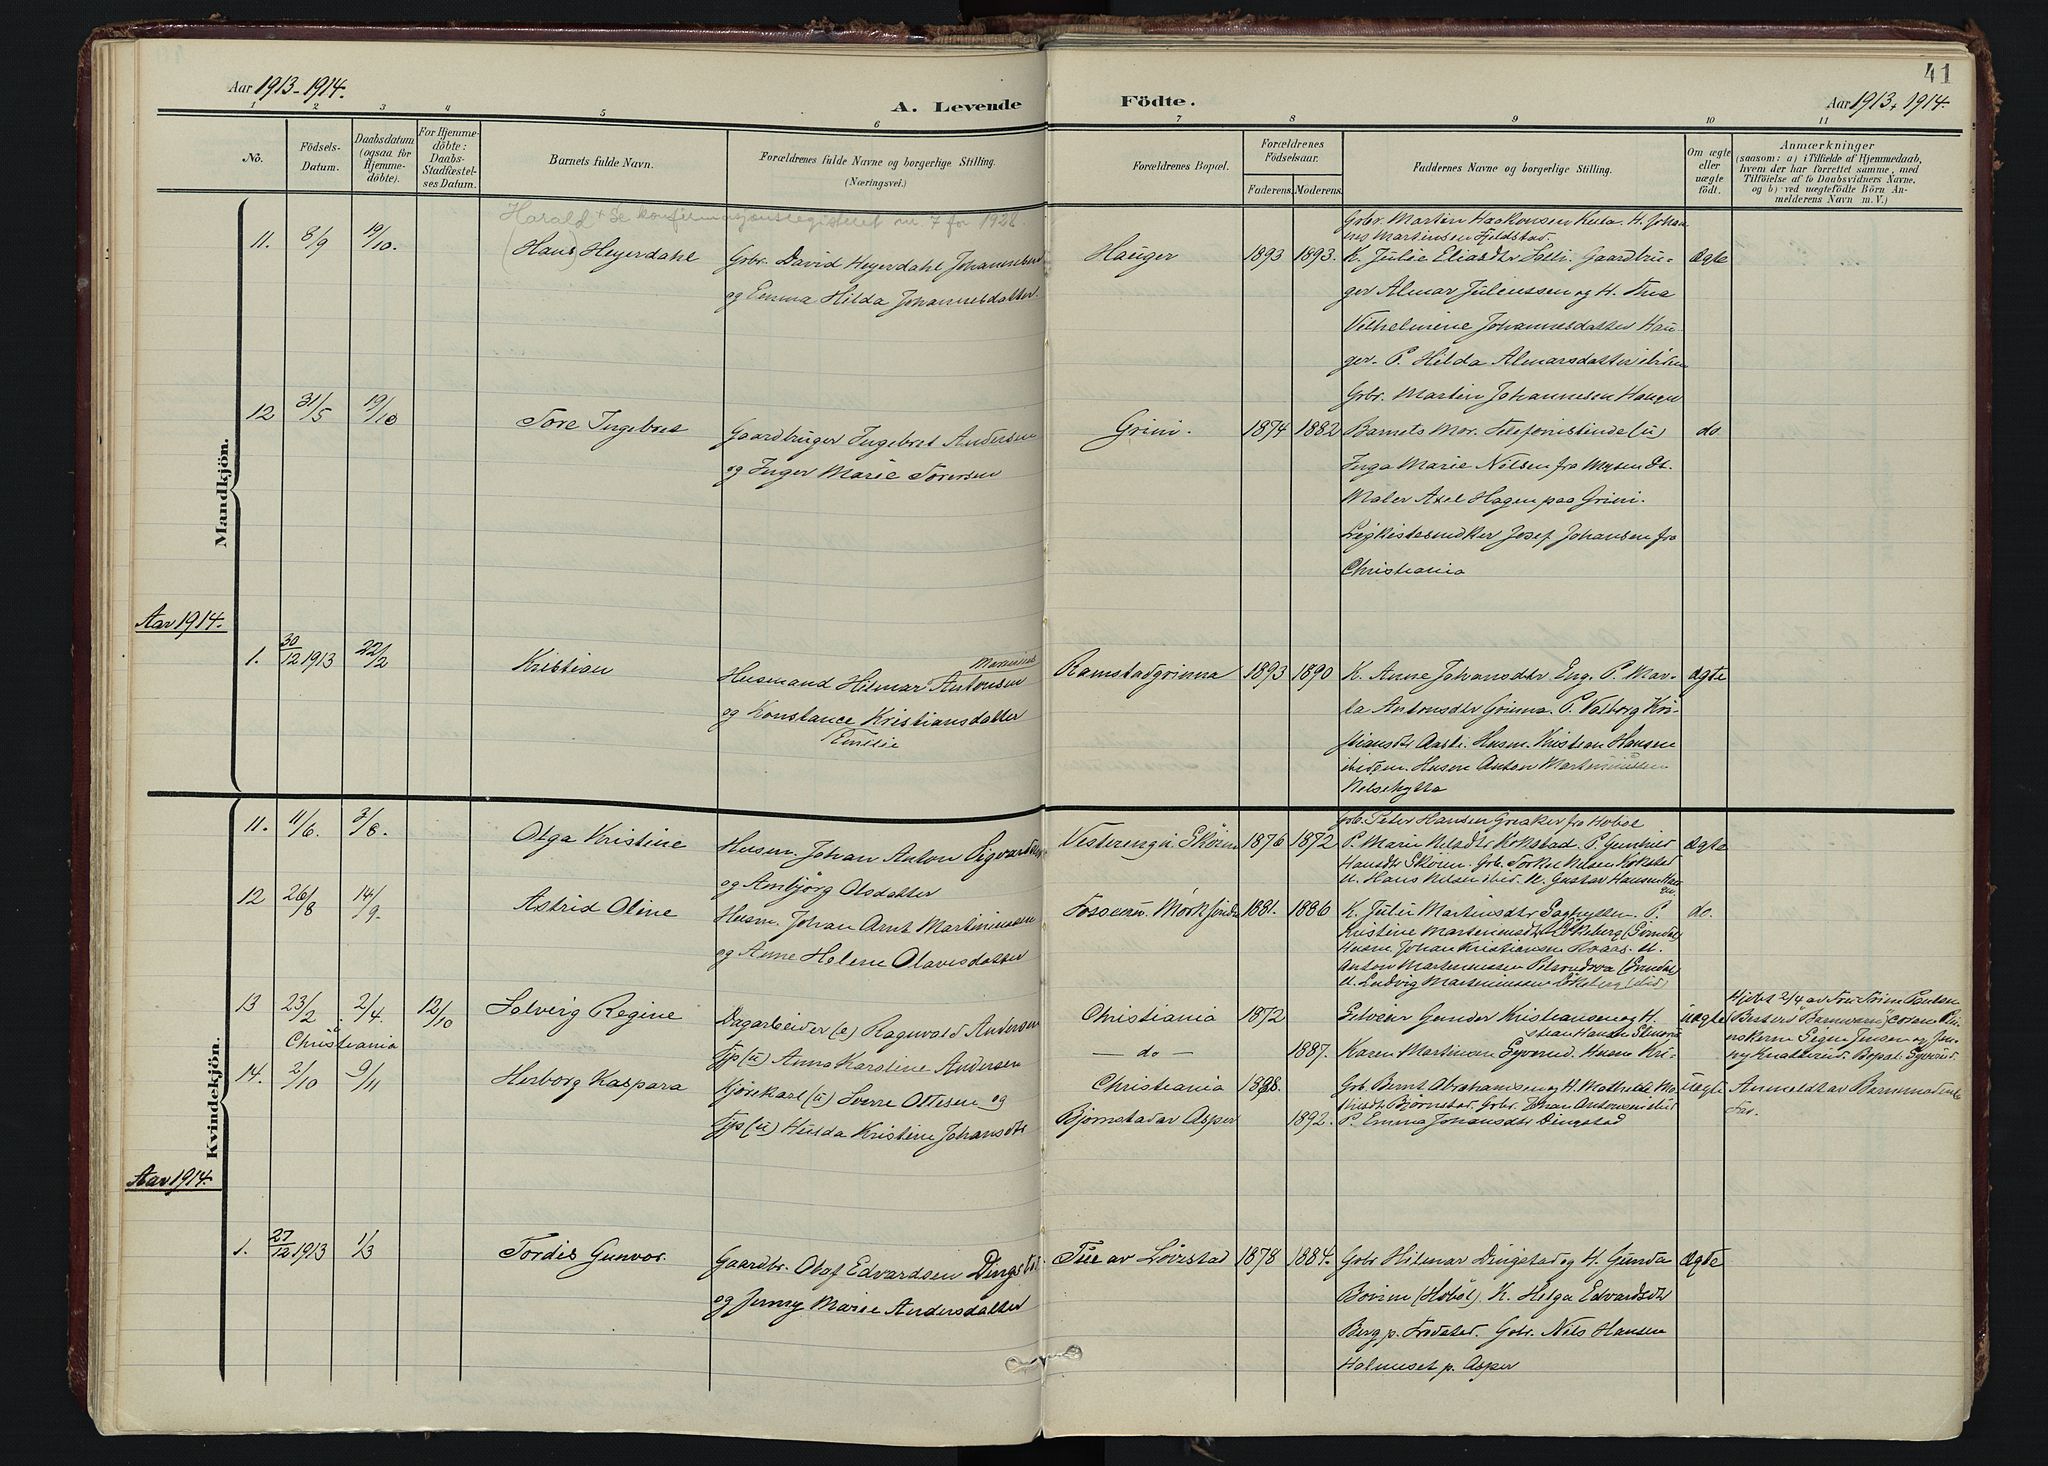 Aar 1913-1914.
A. Levende
Födte.
Aar 1913, 1914.
41
1 2 3 4 5 6 7 8 9 10 11
No.
Födsels-
Datum.
Daabsdatum
(ogsaa for
Hjemme-
döbte).
For Hjemme-
döbte:
Daabs-
Stadfæstel-
ses Datum.
Barnets fulde Navn.
Forældrenes fulde Navne og borgerlige Stilling.
(Næringsvei.)
Forældrenes Bopæl.
Forældrenes
Födselsaar.
Faderens. Moderens.
Faddernes Navne og borgerlige Stilling.
Om ægte
eller
uægte
födt.
Anmærkninger
(saasom: a) i Tilfælde af Hjemmedaab,
hvem der har forrettet samme, med
Tilföielse af to Daabsvidners Navne,
og b) ved uægtefödte Börn An-
melderens Navn m. V.)
Mandkjön.
Harald + Se konfirmasjonsregisteret nr. 7 for 1928.
11. 8/9 19/10. (Hans) Heyerdahl
Gbr. David Heyerdahl Johannesen
og Emma Hilda Johannesdatter.
Hauger 1893 1893.
Gbr. Martin Haakonsen Kusa. H. Johan-
nes Martinsen Fjeldstad.
K. Julie Eliasdtr Solli. Gaardbru-
ger Almar Juliussen og H. Thea
Vilhelmine Johannesdatter Hau-
ger. P. Hilda Almarsdatter ibidem
Gbr. Martin Johannesen Hauger
ægte
12 31/5 19/10 Tore Ingebret
Gaardbruger Ingebret Andersen
og Inger Marie Toresen
Grini. 1874 1882
Barnets Mor. Telefonistinde (u)
Inga Marie Nilsen fra Mysen St.
Maler Axel Hagen paa Grini.
Ligkistesnedker Josef Johansen fra
Christiania
do
Aar 1914.
1. 30/12 1913 22/2 Kristian
Marinius
Husmand Hilmar Antonsen
og Konstance Kristiansdatter
Emilie
Ramstadgrinna 1893 1890
K. Anne Johansdtr Eng. P. Mar-
ta Antonsdtr Grinna. P. Valborg Kri-
stiansdtr Aasti. Husm. Kristian Hansen
ibidem. Husm Anton Martiniussen
Nilsehytta
ægte
Kvindekjön.
11. 11/6. 3/8. Olga Kristine
Husm. Johan Anton Sigvartsen
og Ambjørg Olsdatter
Vesterengn. Skören 1876 1872
Gbr. Peter Hansen Greaker fra Hobøl
P. Marie Nilsdtr Kokstad. P. Gunhild
Hansdtr Skören. Gbr. Torkel Nilsen Kokstad
U. Hans Nilsen ibid. U. Gustav Hansen
ægte
12 26/8 14/9. Astrid Oline
Husm. Johan Arnt Martiniussen
og Anne Helene Olavesdatter
1881. 1886
K. Julie Martinsdtr Saghytten. P.
Kristine Martiniusdtr Ekeberg
Husm Johan Kristiansen U.
Anton Martiniussen
U. Ludvig Martiniussen Ekeberg (ibid)
do.
13 23/2 2/4. 12/10 Solveig Regine
i
Christiania
Dagarbeider (e) Ragnvald Andersen
Tjp (u) Anna Karoline Andersen
Christiania 1872
— do — 1887.
Gunder Kristiansen og H.
Karen Martinsen Syverud. Husm Kri-
stian Hansen
uægte
Hjdbt 2/4 av
Jensen og Jen-
ny Knatterud. Bopæl: Syverud.
14. 2/10 9/11 Herborg Kaspara
Kjørekarl (u) Sverre Ottesen og
Tjp (u) Hulda Kristine Johansdtr
Christiania 1888.
Bjørnstad av Asper 1892.
Gbr. Bernt Abrahamsen og H. Mathilde Ma-
thisdtr Bjørnstad. Gbr. Johan Antonsen ibid
P. Emma Johansdtr Dingstad
uægte
Anmeldt av Barnemoderens
Far.
Aar 1914.
1. 27/12 1913 1/3 Tordis Gunvor
Gaardbr. Olaf Edvardsen Dingstad
og Jenny Marie Andersdatter
Tue av Lövestad 1878 1884.
Gbr Hilmar Dingstad og H. Gunda
Bovim (Hobøl). K. Helga Edvardsdtr
Berg p. Fredstad. Gbr. Nils Hansen
Holmeset p. Asper
Ægte